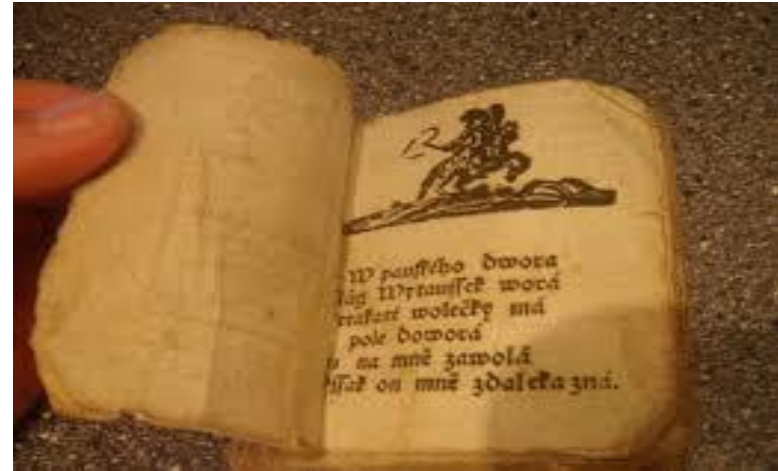 W panſkého dwora
Wrtauſſek worá
wolečky má
pole doworá
na mně zawolá
on mně zdaleka zná.